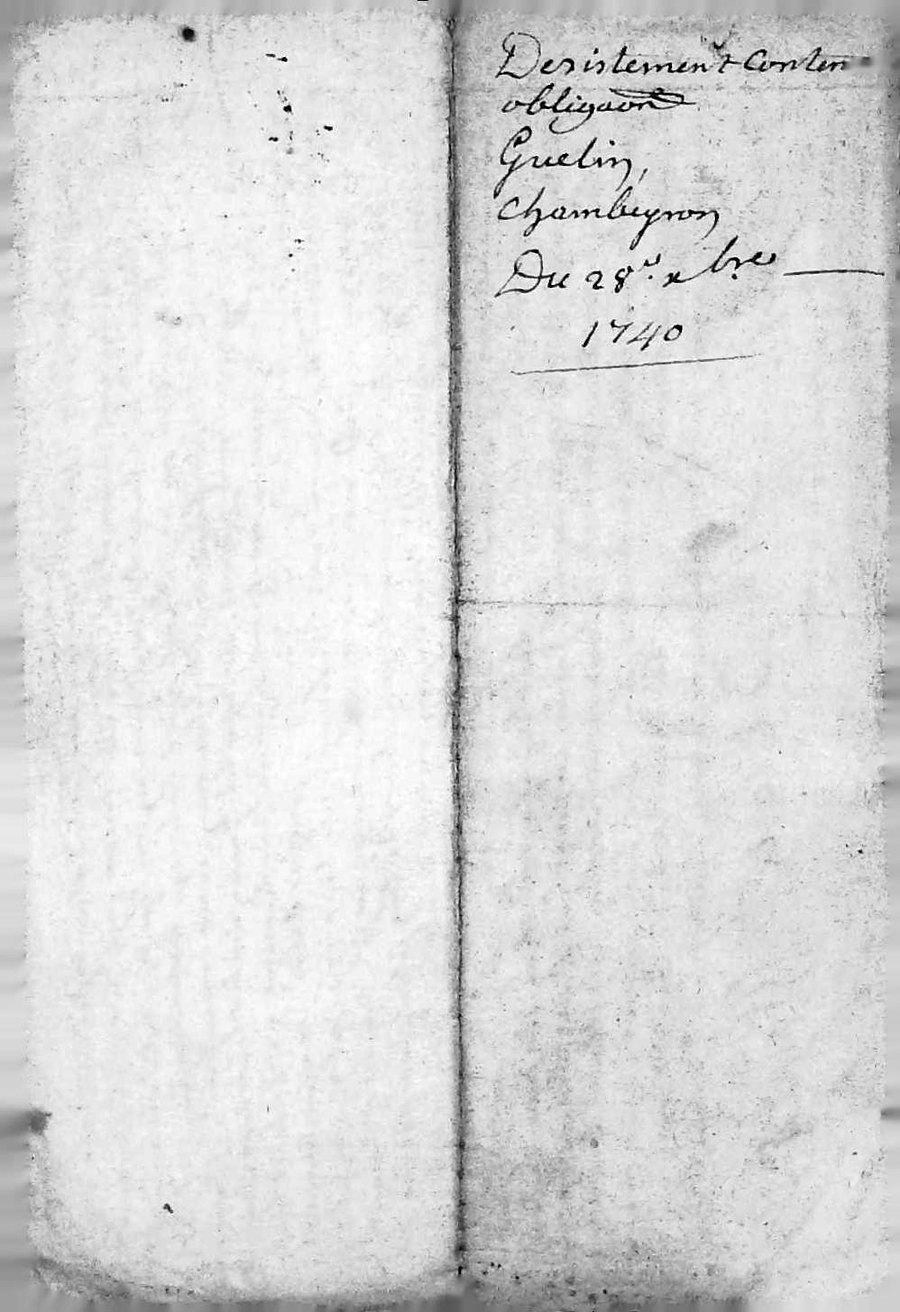 Desistement Conten
obligaõn
Guelin,
Chambeyron
Du 28e. xbre
1740